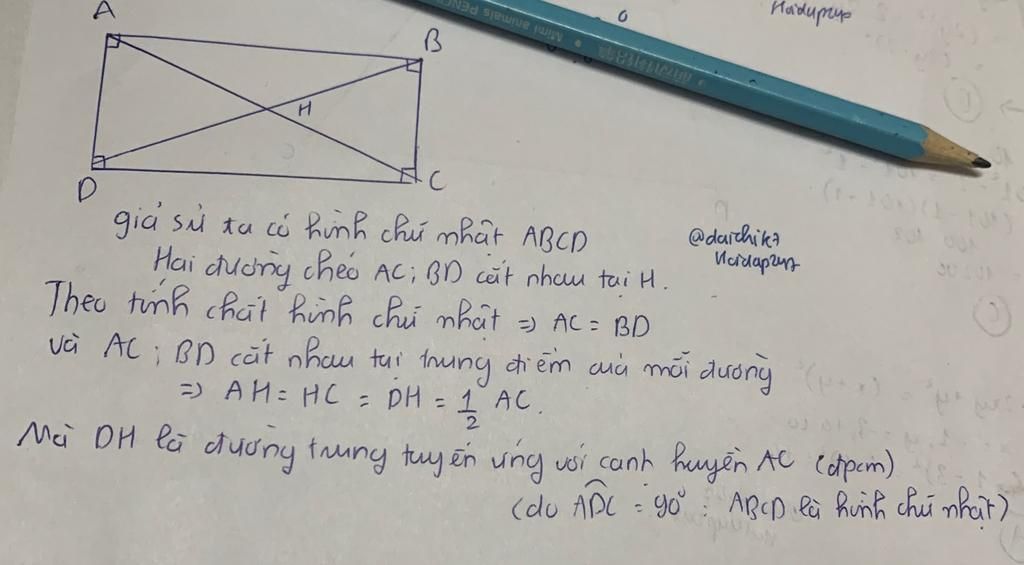 Haidupzyo
Mimi animals PENC
A
B
H
D
C
giả sử ta có hình chữ nhật ABCD
@daichik7
Hai đường chéo AC; BD cắt nhau tại H.
Theo tính chất hình chữ nhật => AC = BD
và AC; BD cắt nhau tại trung điểm của mỗi đường
=> AH = HC = DH = 1/2 AC.
Mà DH là đường trung tuyến ứng với cạnh huyền AC (đpcm)
(do ADC = 90° : ABCD là hình chữ nhật)